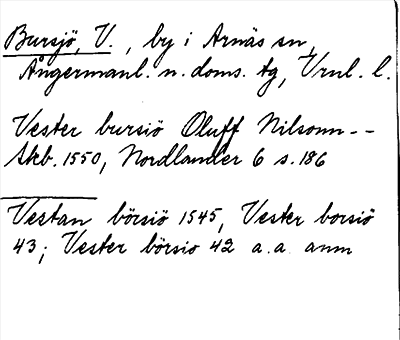 Bursjö, V., by i Arnäs sn,
Ångermanl. n. doms. tg, Vrnl. l.
Vester bursiö Oluff Nilsonn--
Skb. 1550, Nordlander 6 s. 186
Vestan börsiö 1545, Vester borsiö
43; Vester börsio 42 a.a. anm